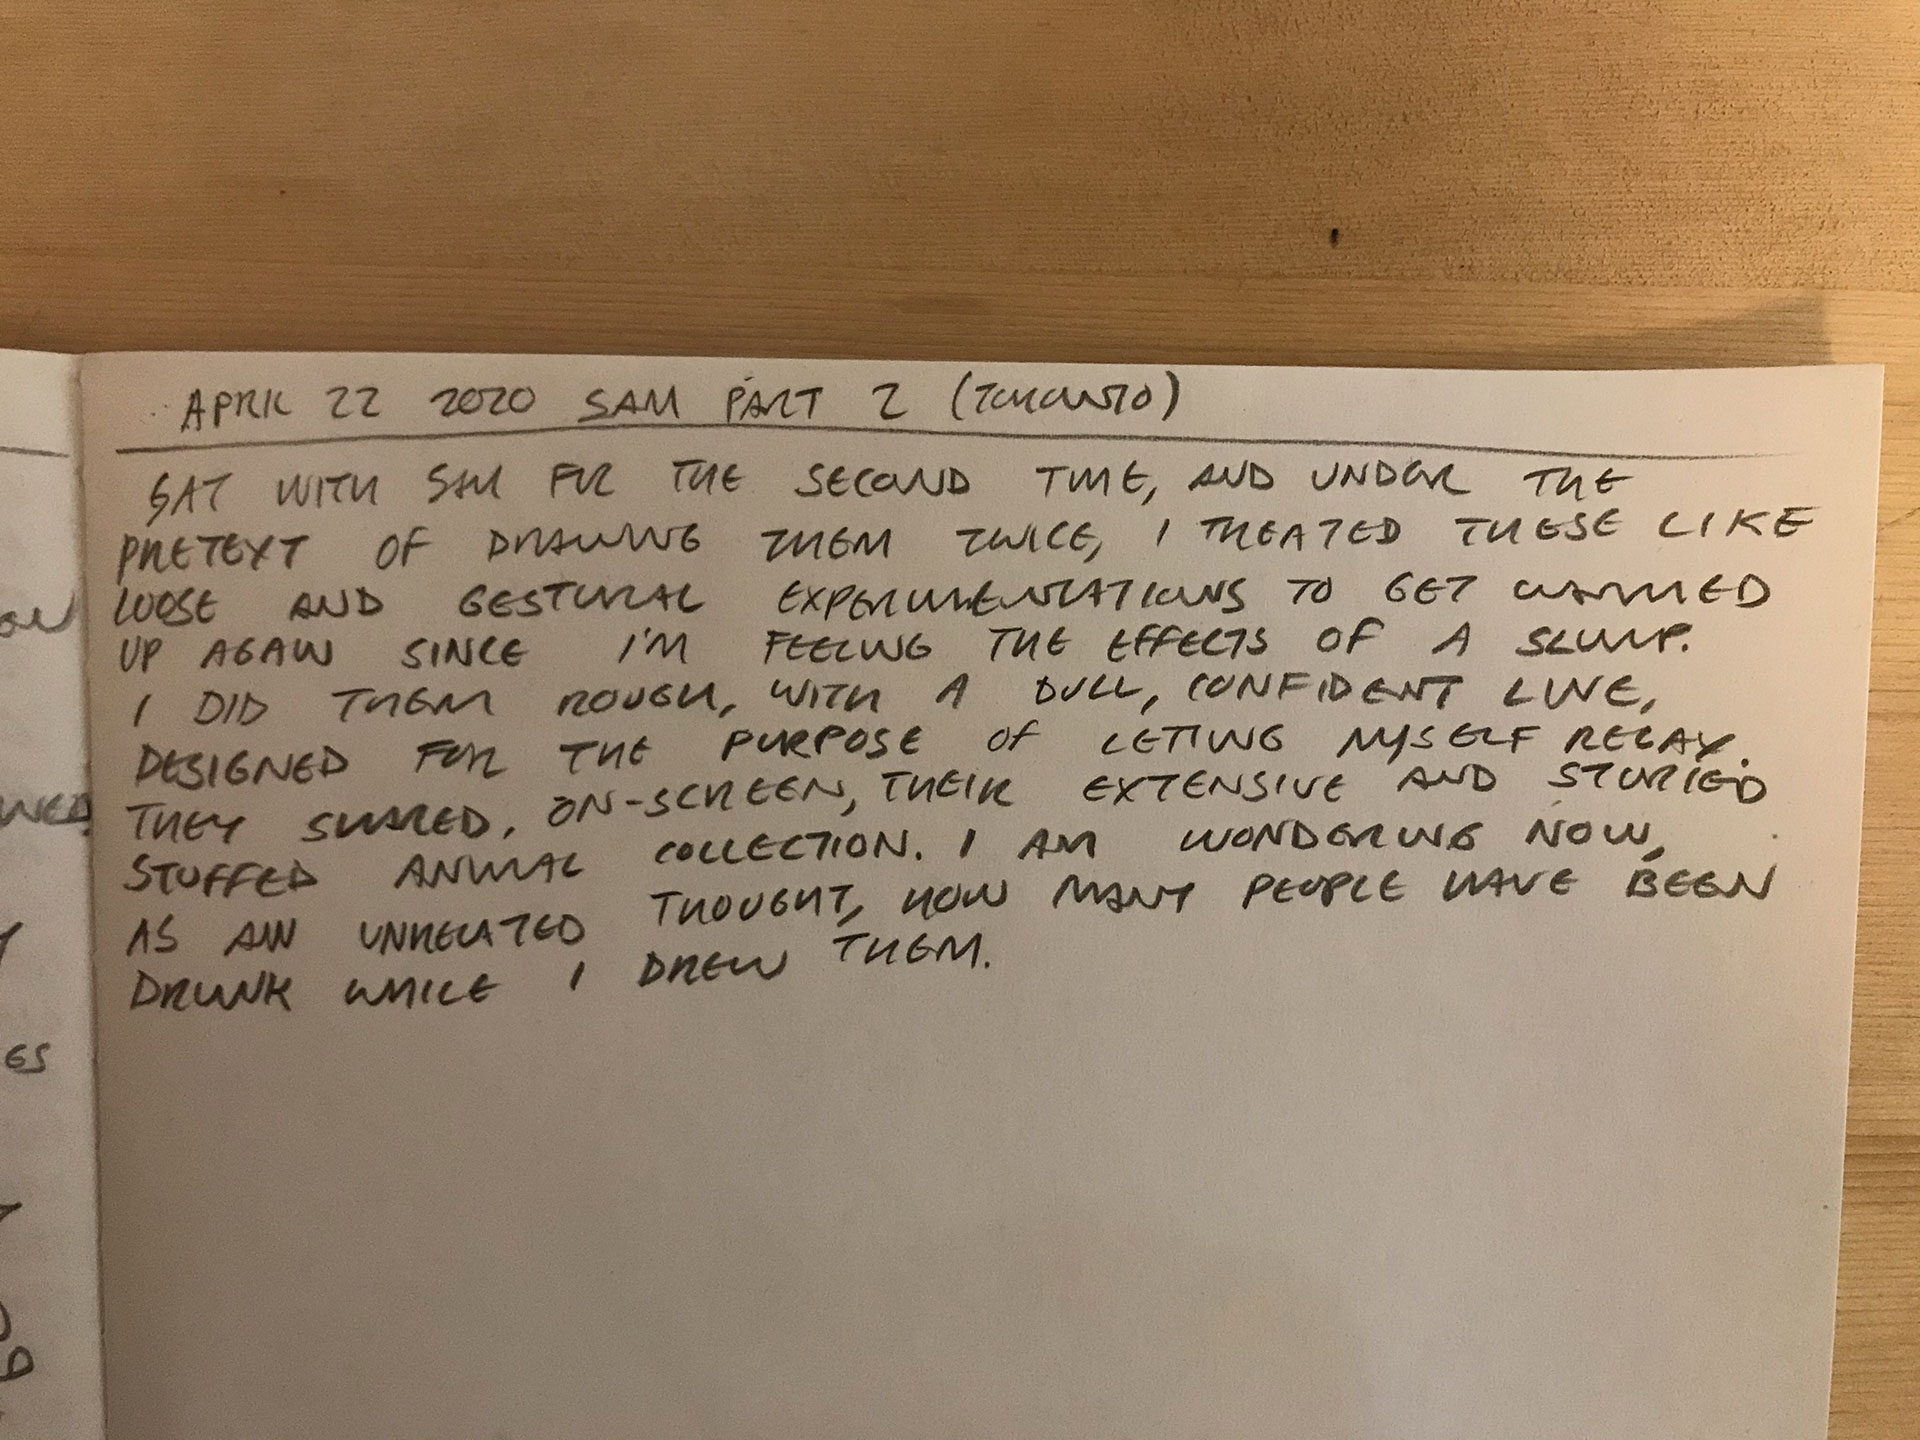 APRIL 22 2020 SAM PART 2 (TORONTO)
SAT WITH SAM FOR THE SECOND TIME, AND UNDER THE
PRETEXT OF DRAWING THEM TWICE, I TREATED THESE LIKE
LOOSE AND GESTURAL EXPERIMENTATIONS TO GET WARMED
UP AGAIN SINCE I'M FEELING THE EFFECTS OF A SLUMP.
I DID THEM ROUGH, WITH A DULL, CONFIDENT LINE,
DESIGNED FOR THE PURPOSE OF LETING MYSELF RELAX.
THEY SHARED, ON-SCREEN, THEIR EXTENSIVE AND STORIED
STUFFED ANIMAL COLLECTION. I AM WONDERING NOW,
AS AN UNRELATED THOUGHT, HOW MANY PEOPLE HAVE BEEN
DRUNK WHILE I DREW THEM.